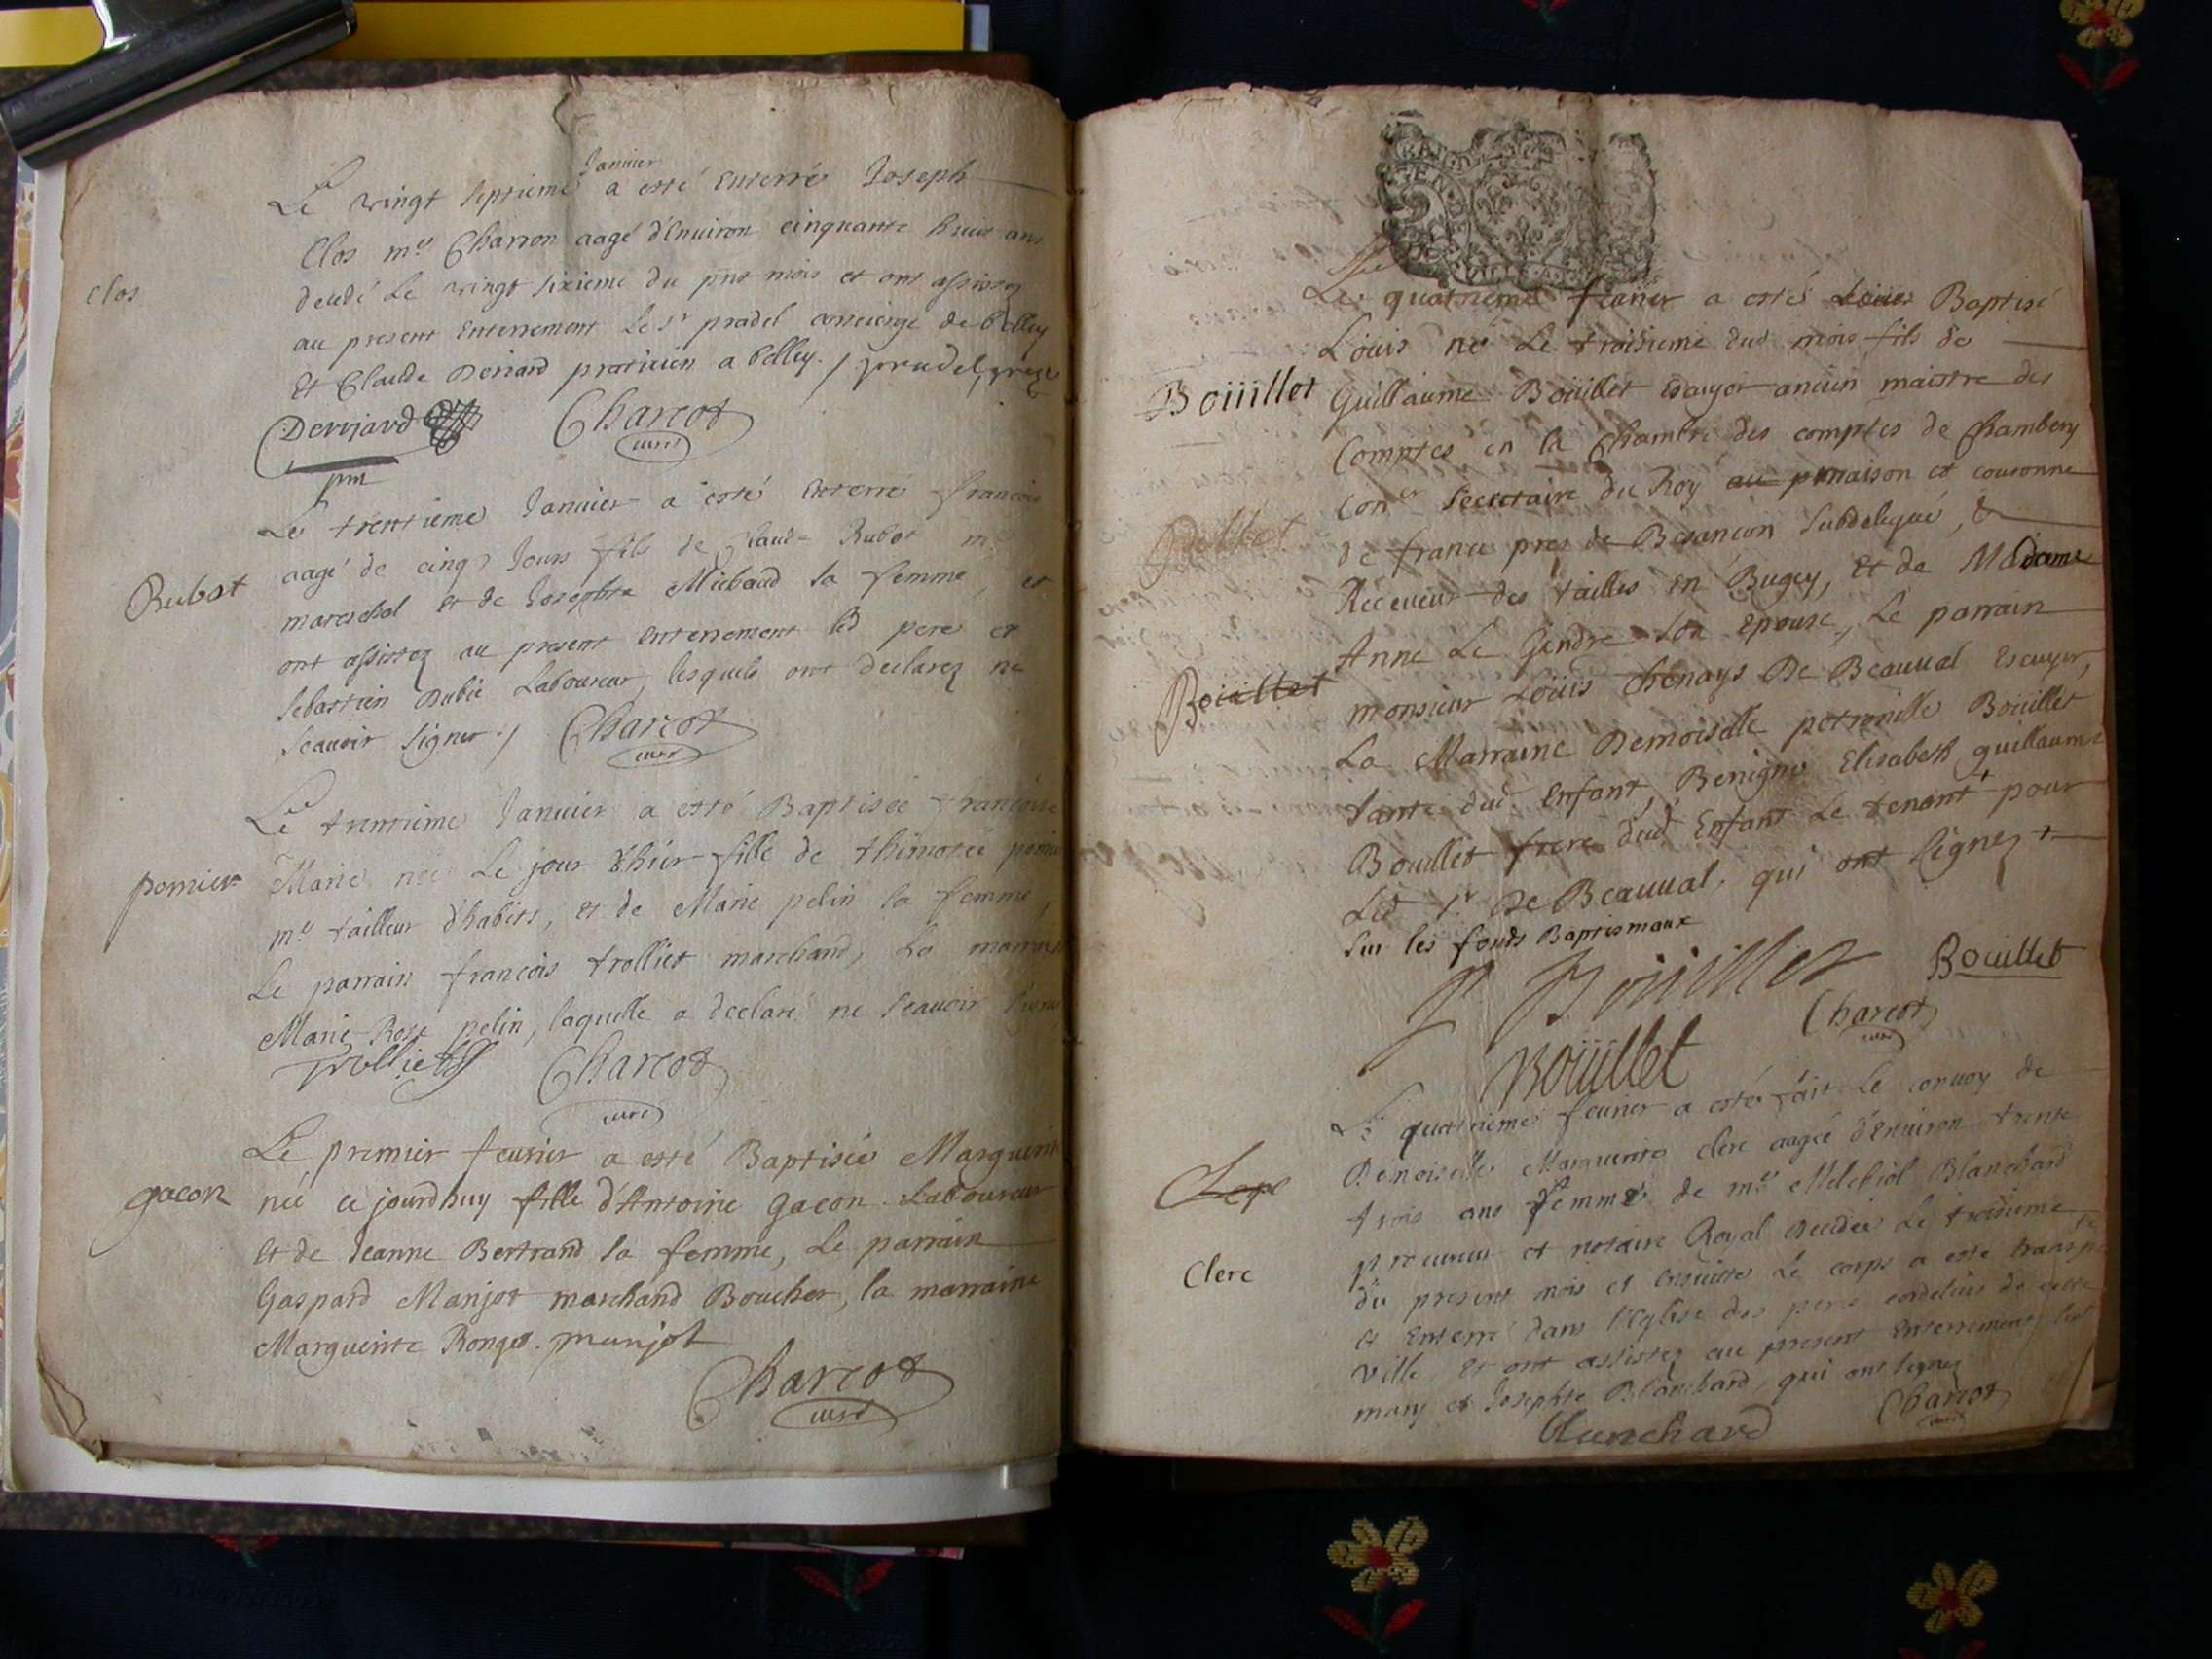 Le vingt septieme Janvier a esté enterré Joseph
Clos
Clos me Charron aagé d'environ cinquante huit ans
decedé Le vingt sixieme du pnt mois et ont assistez
au present Enterrement Le Sr pradel concierge de belley
Et Claude Deriard praticien a belley. / pradel
Derriard Charcot
curé
Le trentieme Janvier a esté Enterré francois
Rubat
aagé de cinq Jours fils de Claude Rubat me
mareschal et de Josephte Michaud sa femme, et
ont assistez au present enterrement led pere et
Sebastien Dubié Laboureur, lesquels ont declarez ne
scavoir signer. / Charcot
curé
Le trentieme Janvier a esté Baptisée francoise
pernier
Marie née Le jour d'hier fille de thimotée
me tailleur d'habits, et de Marie pelin sa femme,
Le parrain francois trolliet marchand, La marraine
Marie Rose pelin, laquelle a declaré ne scavoir signer
Trolliet Charcot
curé
Le premier fevrier a esté Baptisée Marguerite
gacon
née ce jourdhuy fille d'Antoine gacon Laboureur
Et de Jeanne Bertrand sa femme, Le parrain
Gaspard Manjot marchand Boucher, la marraine
Marguerite Ronget. manjot
Charcot
curé
GEN
Le quatrieme fevrier a esté Louis Baptisé
Louis né Le troisieme dud mois fils de
Boüillet
Guillaume Boüillet Escuyer ancien maistre des
Comptes en la Chambre des comptes de Chambery
Coner Secretaire du Roy au maison et couronne
Boüillet
de france pres de Besancon Subdelegué, &
Receveur des tailles en Bugey, et de Madame
Anne Le Gendre son Epouse, Le parrain
Boüillet
monsieur Loüis chenays De Beauval Escuyer,
La Marraine Demoiselle petronille Boüillet
tante dud Enfant, Benigne Elisabeth guillaume
Boüillet frere dud Enfant Le tenant + pour
Led Sr De Beauval, qui ont signez +
Sur les fonds Baptismaux
P. Boüillet Bouillet
Boüillet Charcot
curé
Le quatrieme fevrier a esté fait Le convoy de
Demoiselle Marguerite clerc aagée d'environ trente
trois ans femme de me Melchiol Blanchard
procureur et notaire Royal decedée Le troisieme
Clerc
du present mois et ensuitte Le corps a esté transpte
et Enterré dans l'Eglise des peres cordeliers de cette
Ville, Et ont assistez au present Enterrement led
mary et Josephte Blanchard, qui ont signez
Blanchard Charcot
curé